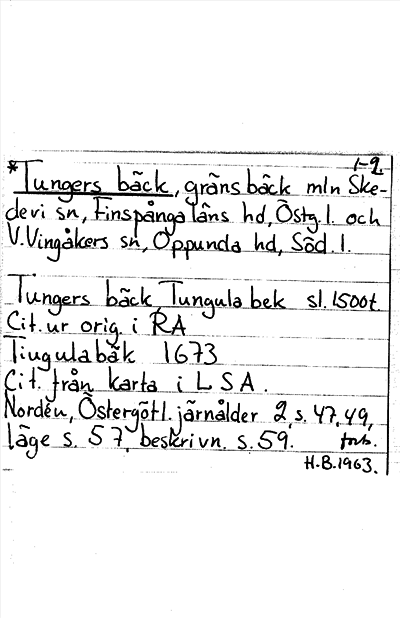 1-2
*Tungers bäck, gränsbäck mln Ske-
devi sn, Finspånga läns hd, Östg. l. och
V. Vingåkers sn, Oppunda hd, Söd. l.
Tungers bäck, Tungula bek sl. 1500t.
Cit. ur orig. i RA
Tiugulabäk 1673
Cit. från karta i LSA.
Nordén, Östergötl. järnålder 2, s. 47, 49,
läge s. 57, beskrivn. s. 59.
H.B. 1963.